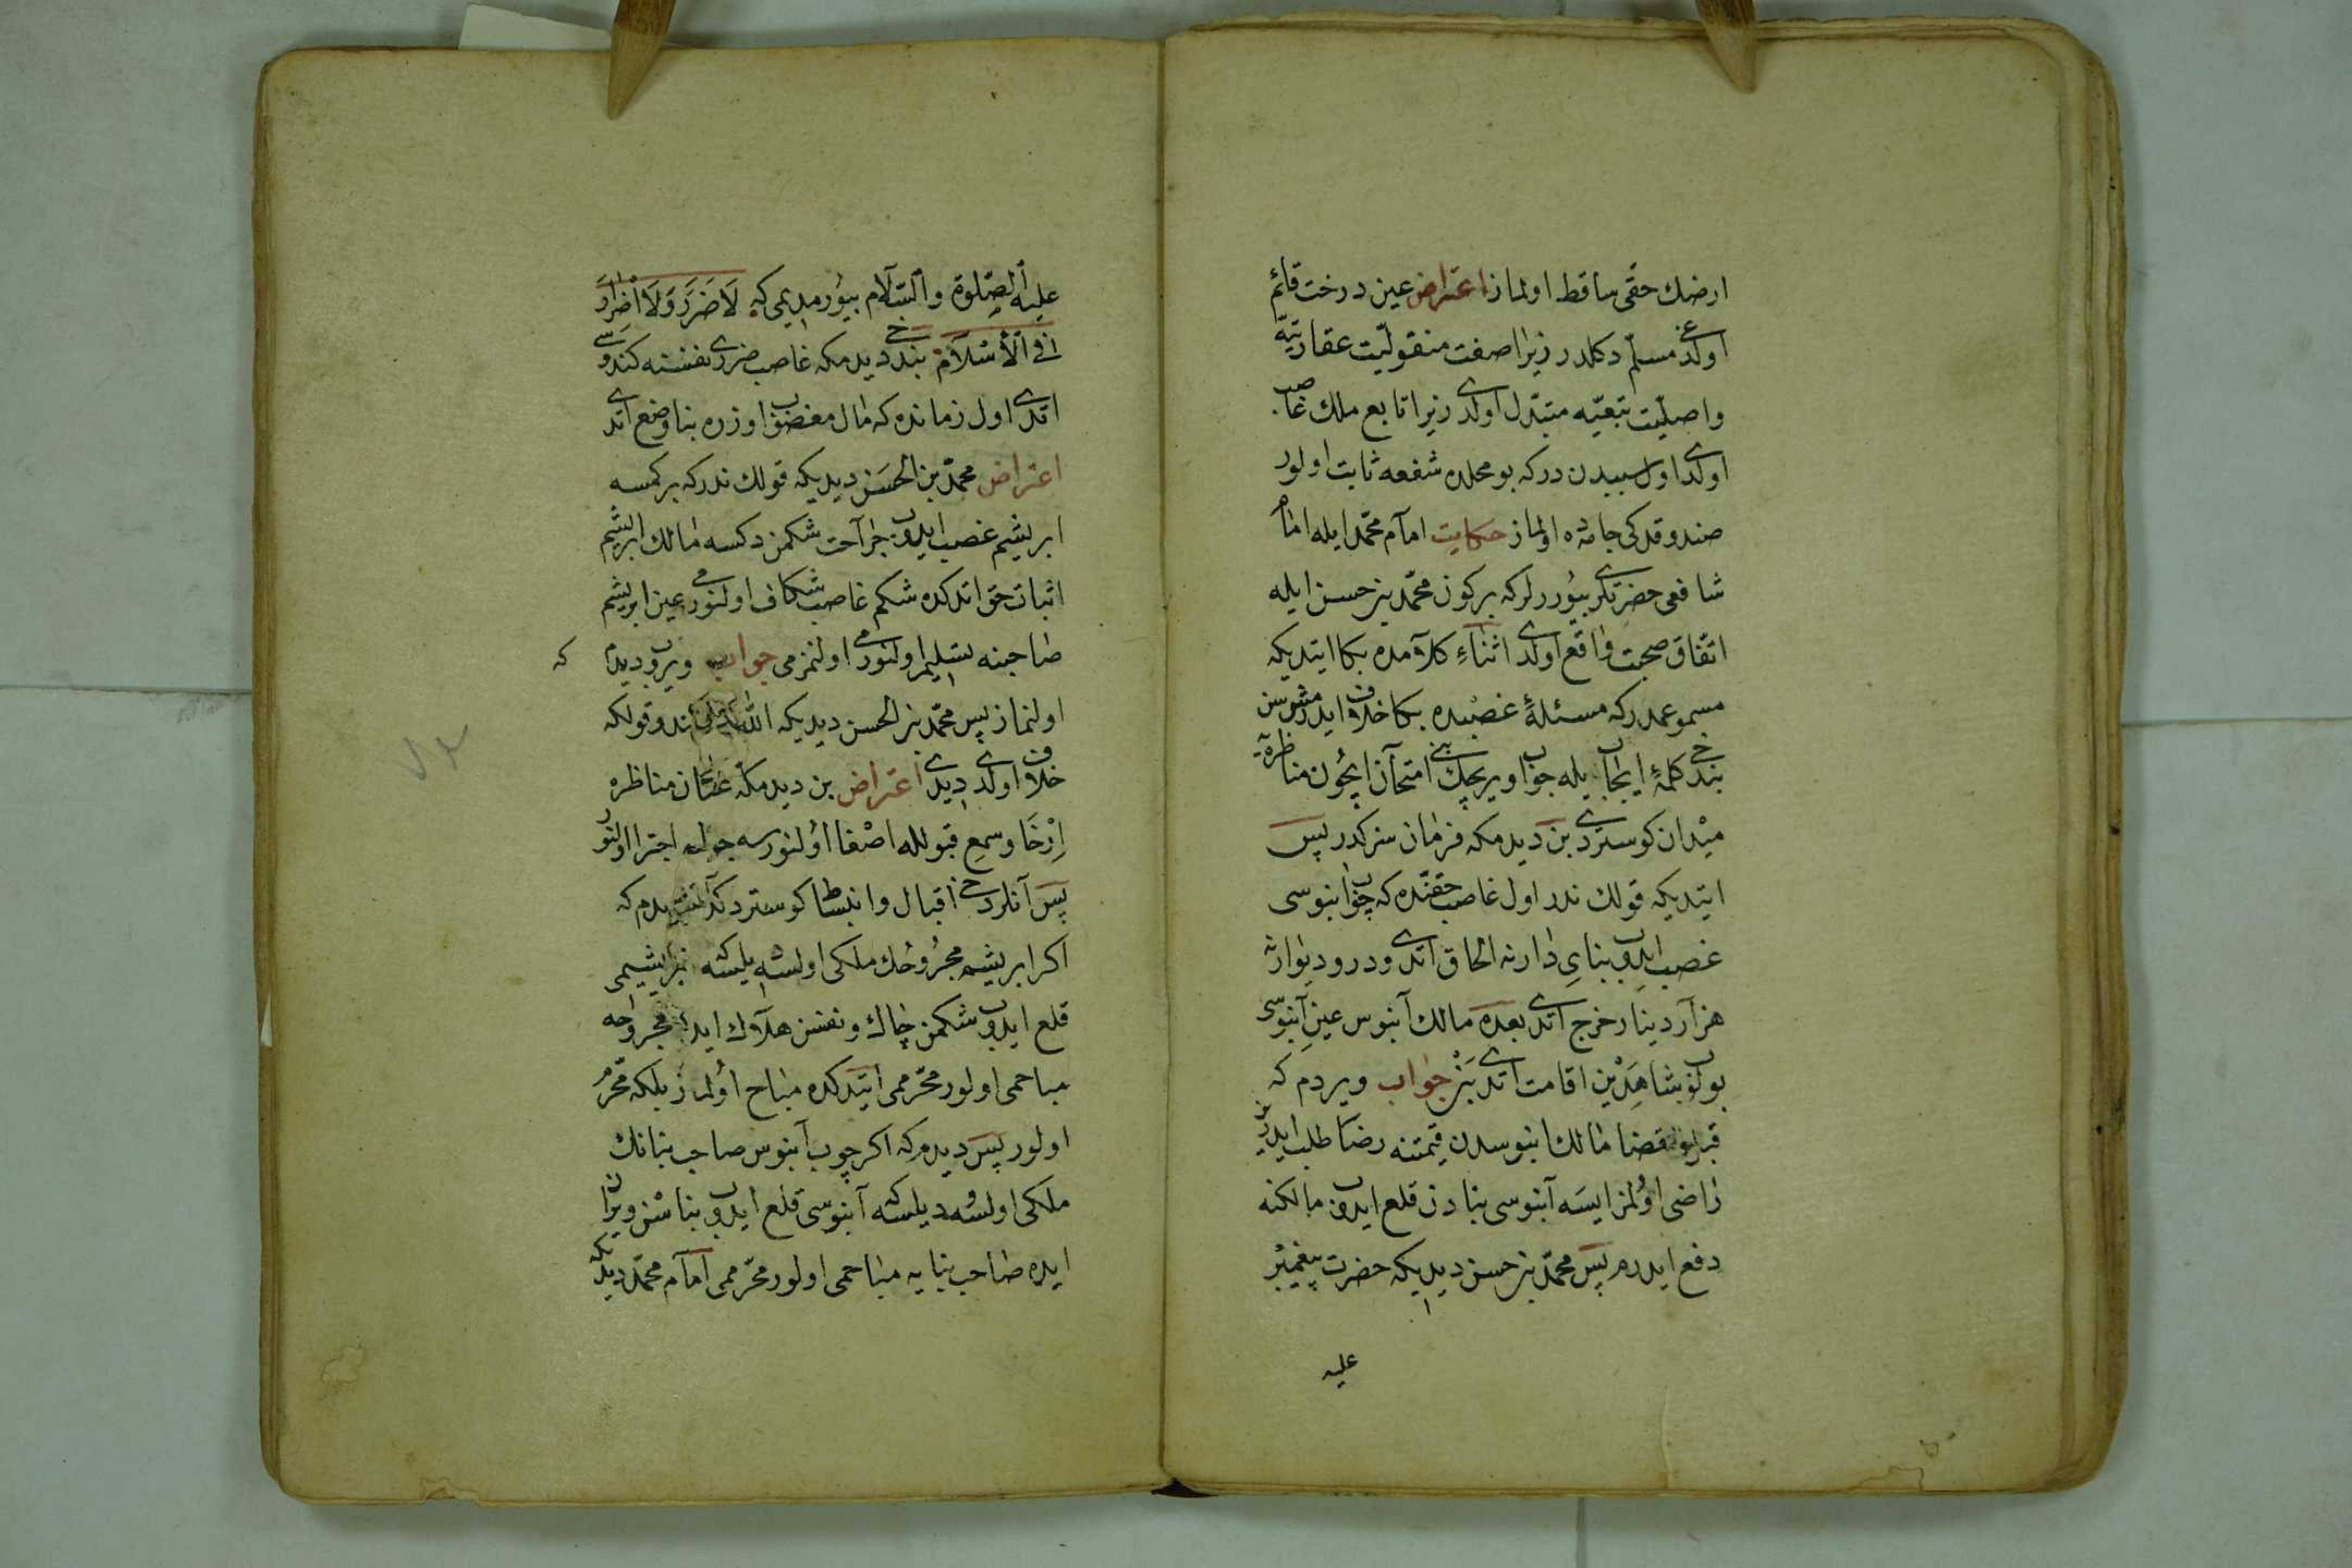 ارضك حقى ساقط اولماز اعتراض عين درخت قائم
اولدغى مسلّم دكلدر زيرا صفت منقوليّت عقاريّته
واصليّت تبعيّه متبدّل اولدى زيرا تابع ملك غاصب
اولدى اول سببدن دركه بو محلده شفعه ثابت اولور
صندوقدكى جامه ده اولماز حكايت امام محمّد ايله امام
شافعى حضرتلرى بيوررلركه بركون محمّد بن حسن ايله
اتّفاق صحبت واقع اولدى اثناءِ كلامده بكا ايتديكه
مسموعمدركه مسئلهٔ غصبده بكا خلاف ايدرمشسن
بندخى كلمهٔ ايجاب يله جواب ويريجك بنى امتحان ايچون مناظره يه
ميدان كوستردى بن ديدمكه فرمان سزكدر پس
ايتديكه قولك ندر اول غاصب حقنده كه چوب ابنوسى
غصب ايدوب بناىِ دارنه الحاق اتدى ودر وديوارنه
هزار دينار خرج اتدى بعده مالك آبنوس عينِ آبنوسى
بولوب شاهدين اقامت اتدى بن جواب ويردم كه
قبل القضا مالك ابنوسدن قيمتنه رضا طلب ايدرز
راضى اولمز ايسه آبنوسى بنادن قلع ايدوب مالكنه
دفع ايدرم پس محمّد بن حسن ديديكه حضرت پيغمبر
عليه
عليه الصّلوة والسّلام بيورمديمى كه لَا ضَرَرَ وَلَا اضرار
فى الأسلام بندخى ديدمكه غاصب ضررى نفسنه كندوسى
اتدى اول زمانده كه مال مغضوب اوزره بنا وضع اتدى
اعتراض محمّد بن الحسن ديديكه قولك ندركه بر كمسه
ابريشم غصب ايدوب جراحت شكمن دكسه مالك ابريشم
اثبات حق اتدكده شكم غاصب شكاف اولنورمى عين ابريشم
صاحبنه تسليم اولنورمى اولنمزمى جواب ويروب ديدم كه
اولنماز پس محمّد بن الحسن ديديكه الله كندو قولكه
خلاف اولدى ديدى اعتراض بن ديدمكه عنان مناظره
اِرْخَا وسمع قبولله اصغا اولنورسه جوابه اجترا اولنور
پس آنلردخى اقبال وانبساط كوستردكده ديدم كه
اكر ابريشم مجروحك ملكى اولسه يلسه ابريشيمى
قلع ايدوب شكمن چاك ونفسن هلاك ايده مجروحه
مباحمى اولور محرّممى ايتدكده مباح اولماز بلكه محرّم
اولور پس ديدم كه اكر چوب آبنوس صاحب بنانك
ملكى اولسه وديلسه آبنوسى قلع ايدوب بناسن ويران
ايده صاحب بنايه مباحمى اولور محرّممى امام محمّد ديديكه